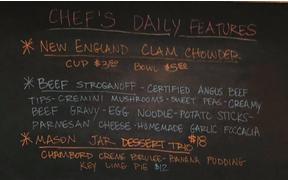 CHEF'S DAILY FEATURES
* NEW ENGLAND CLAM CHOWDER
CUP $3.50 BOWL $5.00
* BEEF STROGANOFF - CERTIFIED ANGUS BEEF
TIPS - CREMINI MUSHROOMS - SWEET PEAS - CREAMY
BEEF GRAVY - EGG NOODLE - POTATO STICKS -
PARMESAN CHEESE - HOMEMADE GARLIC FOCCACIA
$18
* MASON JAR DESSERT TRIO
CHAMBORD CREME BRULEE - BANANA PUDDING
KEY LIME PIE $12